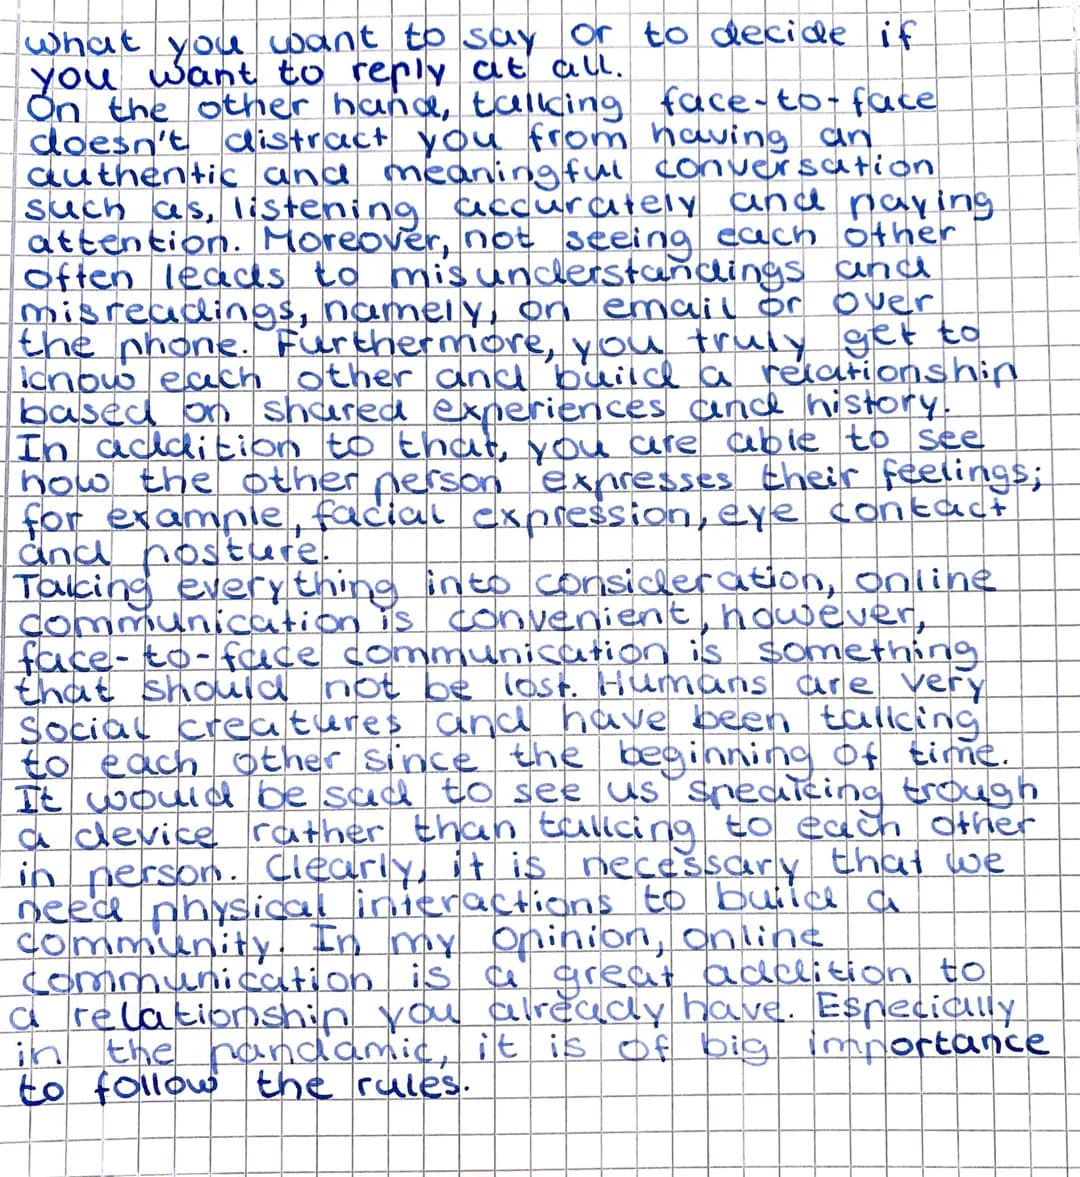 what you want to say or to decide if
you want to reply at all.
On the other hand, talking face-to-face
doesn't distract you from having an
authentic and meaningful conversation
such as, listening accurately and paying
attention. Moreover, not seeing each other
often leads to misunderstandings and
misreadings, namely, on email or over
the phone. Furthermore, you truly get to
know each other and build a relationship
based on shared experiences and history.
In addition to that, you are able to see
how the other person expresses their feelings;
for example, facial expression, eye contact
and posture.
Taking everything into consideration, online
communication is convenient, however,
face-to-face communication is something
that should not be lost. Humans are very
social creatures and have been talking
to each other since the beginning of time.
It would be sad to see us speaking trough
a device rather than talking to each other
in person. Clearly, it is necessary that we
need physical interactions to build a
community. In my opinion, online
communication is a great addition to
a relationship you already have. Especially
in the pandamic, it is of big importance
to follow the rules.